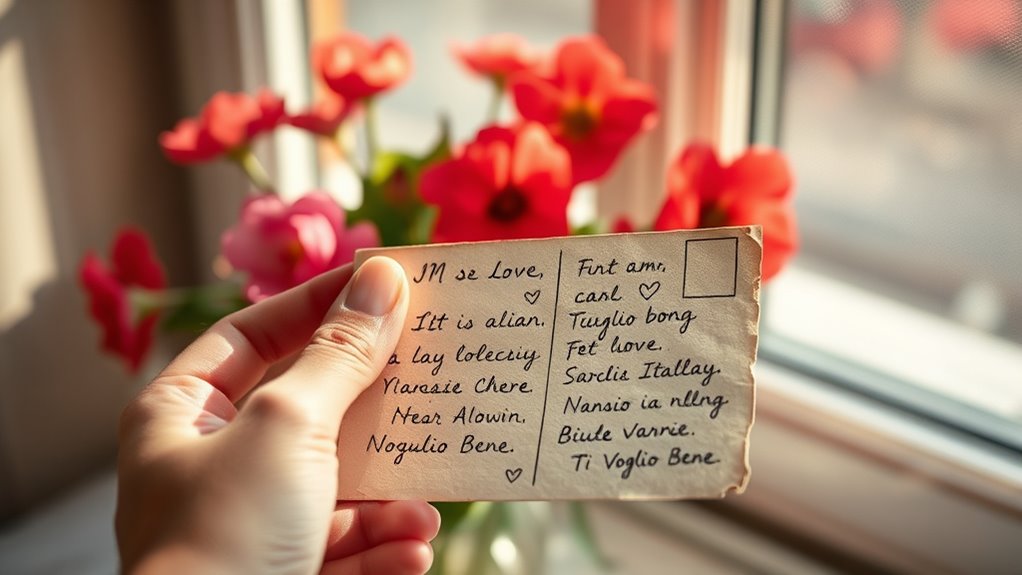 JM se Love,
Itt is alian.
a lay lolecciy
Ylarasie Chere.
Near Alowin,
Nogulio Bene.
Fint amr,
carl
Tuuglio bong
Fet love.
Sarclis Itallay.
Nansio ia nllng
Biule Varrie.
Ti Voglio Bene.